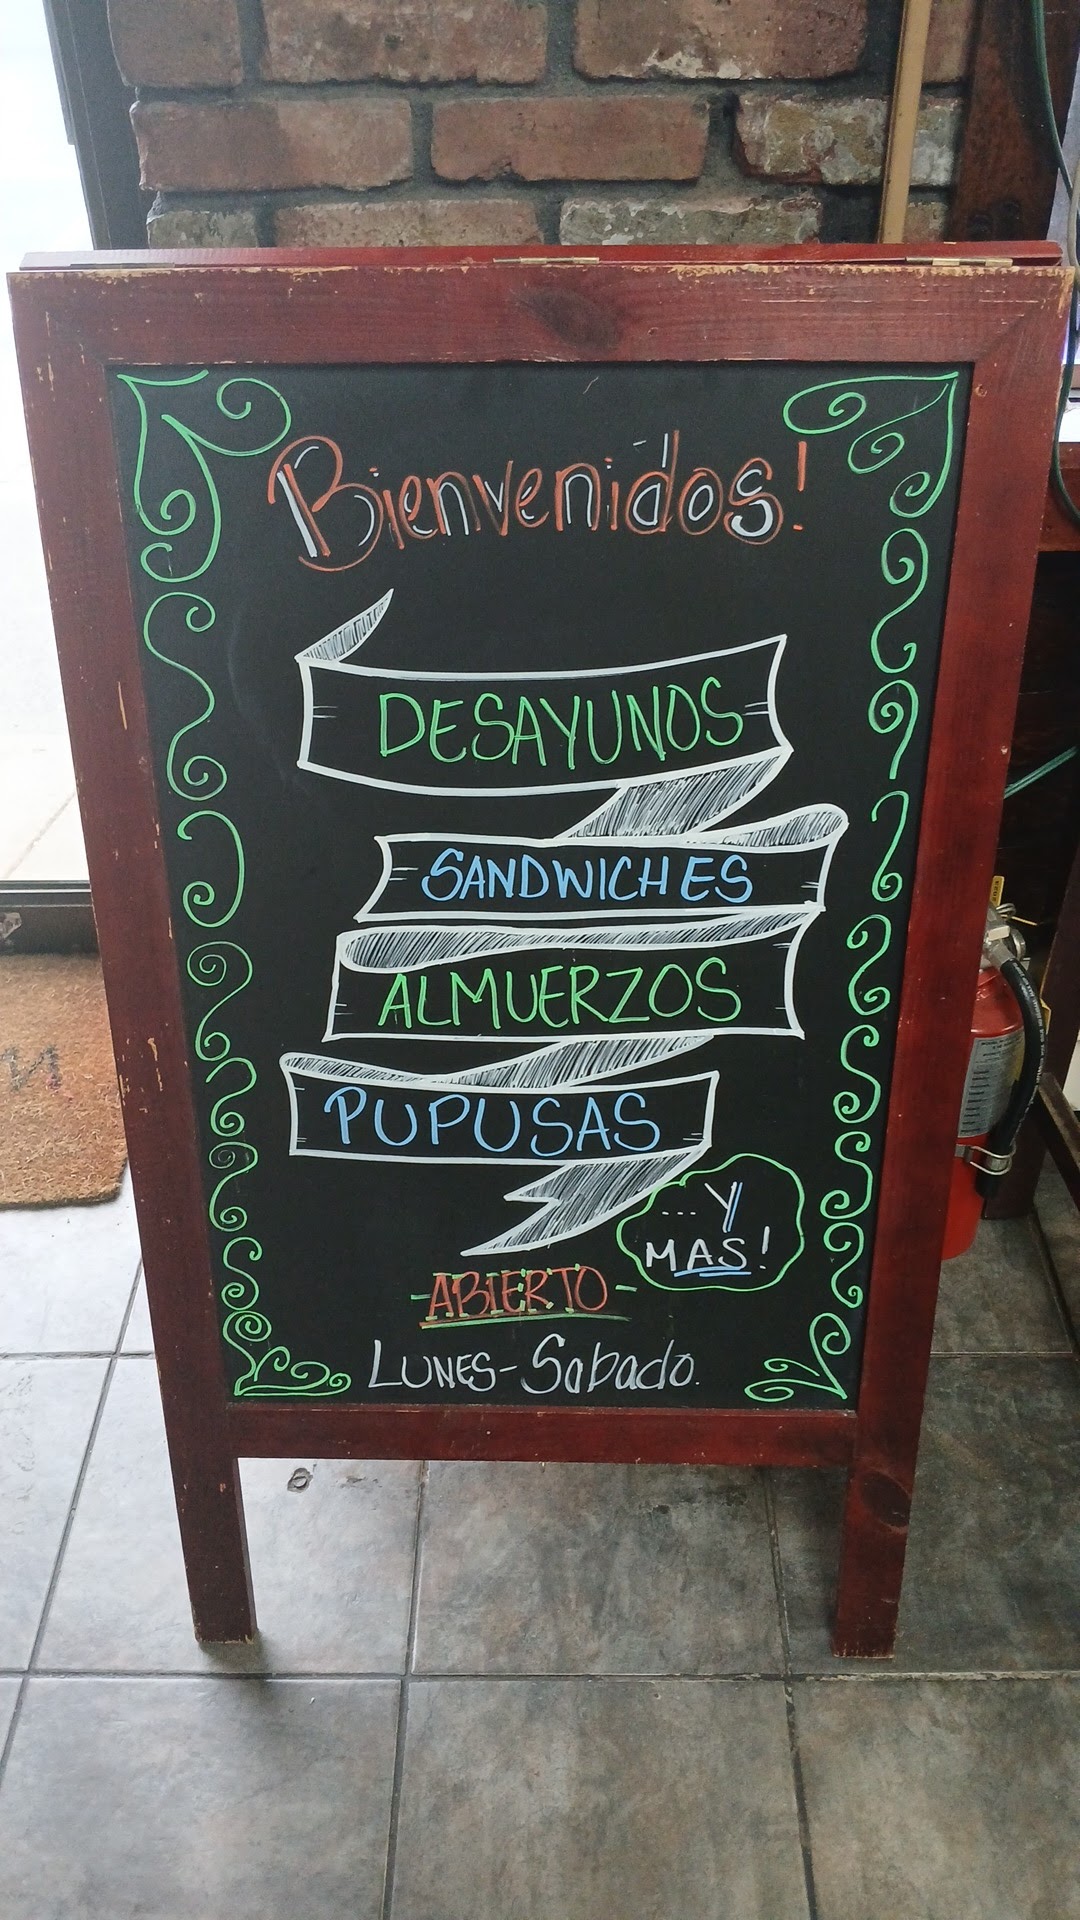 Bienvenidos!
DESAYUNOS
SANDWICHES
ALMUERZOS
PUPUSAS
... Y
MAS!
-ABIERTO-
LUNES-Sabado.